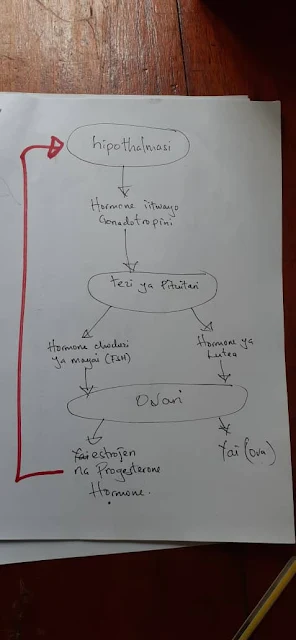 hipothalmasi
Hormone iitwayo
Gonadotropini
Tezi ya Pituitari
Hormone chochezi
ya mayai (FSH)
Hormone ya
Lutea
Ovari
estrojen
na Progesterone
Hormone.
Yai (Ova)